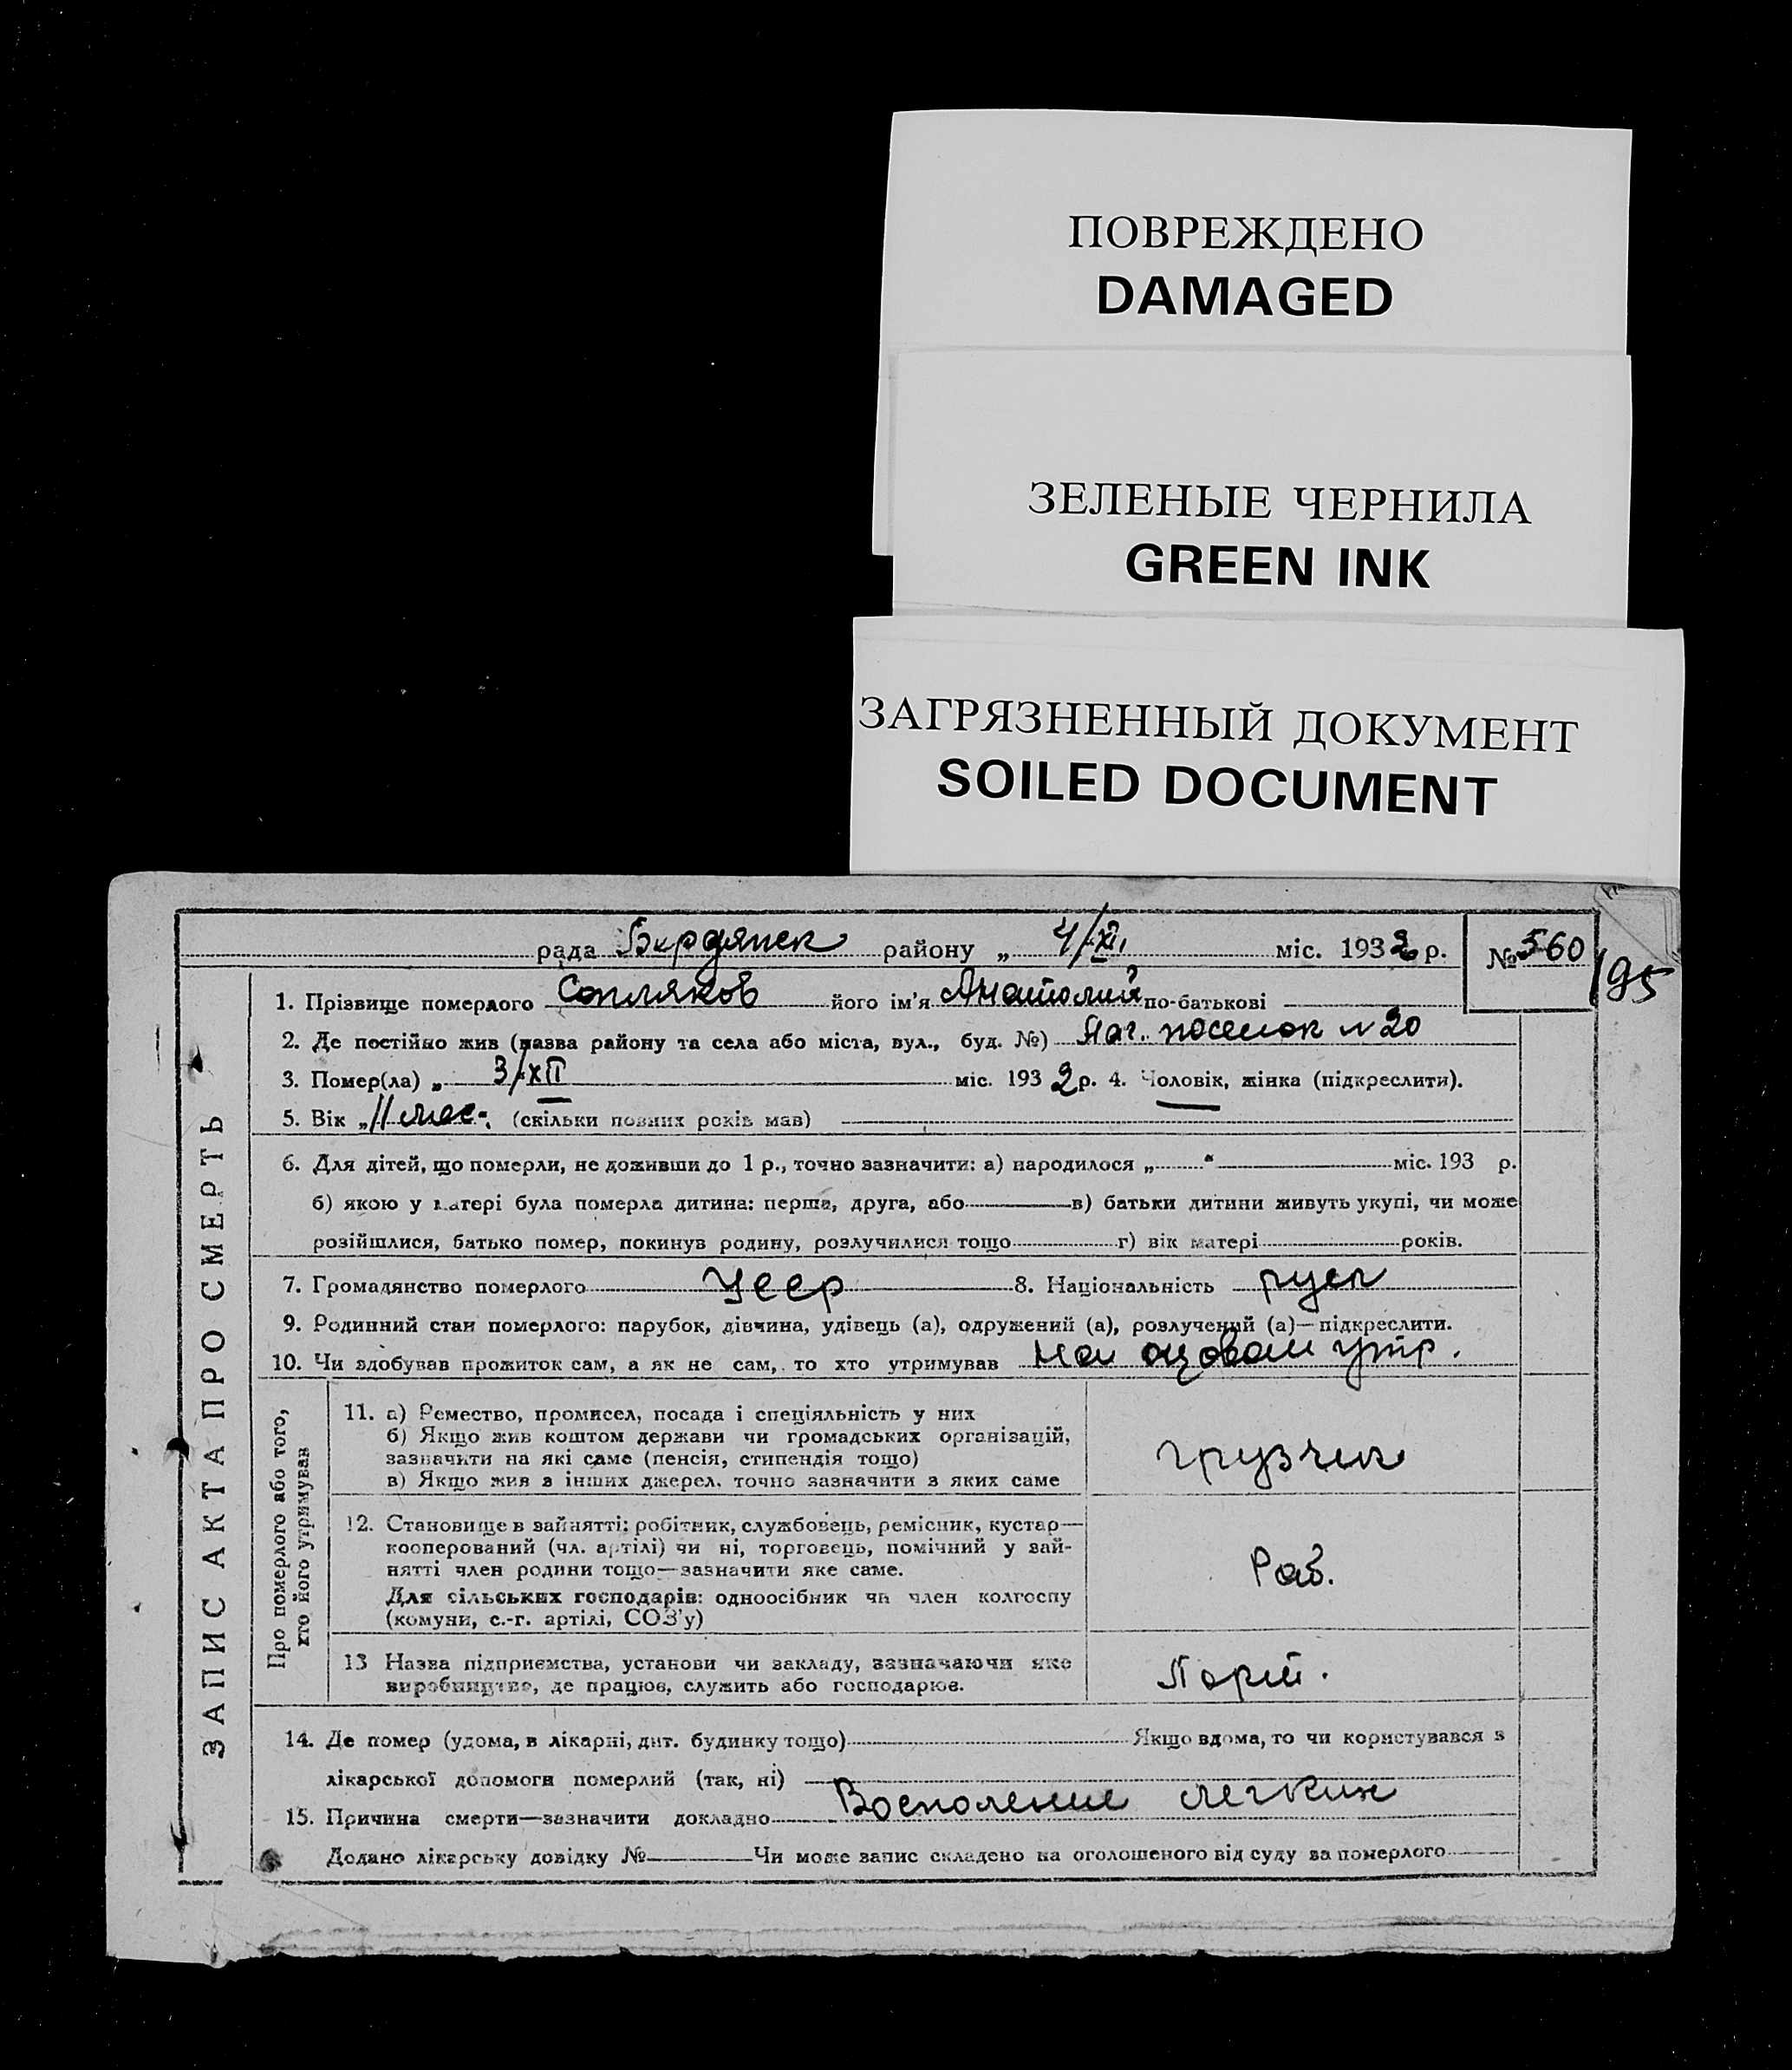 ПОВРЕЖДЕНО
DAMAGED
ЗЕЛЕНЫЕ ЧЕРНИЛА
GREEN INK
ЗАГРЯЗНЕННЫЙ ДОКУМЕНТ
SOILED DOCUMENT
рада Бердянск району „ 4/XII міс. 1932 р. № 560
195
1. Прізвище померлого Сопляков його ім'я Анатолий по-батькові
2. Де постійно жив (назва району та села або міста, вул., буд. №) поселок N 20
3. Помер(ла) „ 3/XII міс. 1932 р. 4. Чоловік, жінка (підкреслити).
5. Вік „ 11 мес. (скільки повних років мав)
6. Для дітей, що померли, не доживши до 1 р., точно зазначити: а) народилося „ “ міс. 193 р.
б) якою у матері була померла дитина: перша, друга, або в) батьки дитини живуть укупі, чи може
розійшлися, батько помер, покинув родину, розлучилися тощо г) вік матері років.
7. Громадянство померлого Усср 8. Національність руск
9. Родинний стан померлого: парубок, дівчина, удівець (а), одружений (а), розлучений (а)—підкреслити.
10. Чи здобував прожиток сам, а як не сам, то хто утримував утр.
ЗАПИС АКТА ПРО СМЕРТЬ
Про померлого або того,
хто його утримував
11. а) Ремество, промисел, посада і спеціяльність у них
б) Якщо жив коштом держави чи громадських організацій,
зазначити на які саме (пенсія, стипендія тощо)
в) Якщо жив з інших джерел, точно зазначити з яких саме
грузчик
12. Становище в зайнятті: робітник, службовець, ремісник, кустар—
кооперований (чл. артілі) чи ні, торговець, помічний у зай-
нятті член родини тощо—зазначити яке саме.
Для сільських господарів: одноосібник чи член колгоспу
(комуни, с.-г. артілі, СОЗ'у)
Раб.
13 Назва підприємства, установи чи закладу, зазначаючи яке
виробництво, де працює, служить або господарює.
Порт.
14. Де помер (удома, в лікарні, дит. будинку тощо) Якщо вдома, то чи користувався з
лікарської допомоги померлий (так, ні)
15. Причина смерти—зазначити докладно Восполение легких
Додано лікарську довідку № Чи може запис складено на оголошеного від суду за померлого